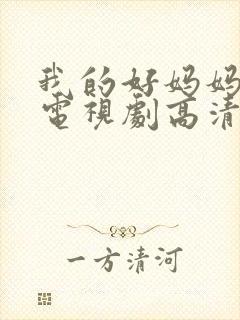 我的好妈妈
電視劇高清
一方清河